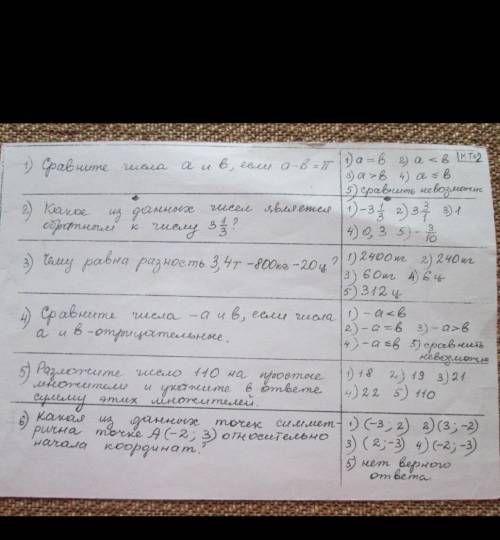 КТ-2
1) Сравните числа a и b, если a-b=π
1) a=b 2) a<b
3) a>b 4) a≤b
5) сравнить невозможн
2) Какое из данных чисел является
обратным к числу 3 1/3?
1) -3 1/3 2) 3 3/1 3) 1
4) 0,3 5) -3/10
3) Чему равна разность 3,4т -800кг -20ц?
1) 2400кг 2) 240кг
3) 60кг 4) 6ц
5) 312ц
4) Сравните числа -a и b, если числа
a и b - отрицательные.
1) -a<b
2) -a=b 3) -a>b
4) -a≤b 5) сравнить
невозможно
5) Разложите число 110 на простые
множители и укажите в ответе
сумму этих множителей.
1) 18 2) 19 3) 21
4) 22 5) 110
6) Какая из данных точек симмет-
рична точке A(-2; 3) относительно
начала координат?
1) (-3; 2) 2) (3; -2)
3) (2; -3) 4) (-2; -3)
5) нет верного
ответа